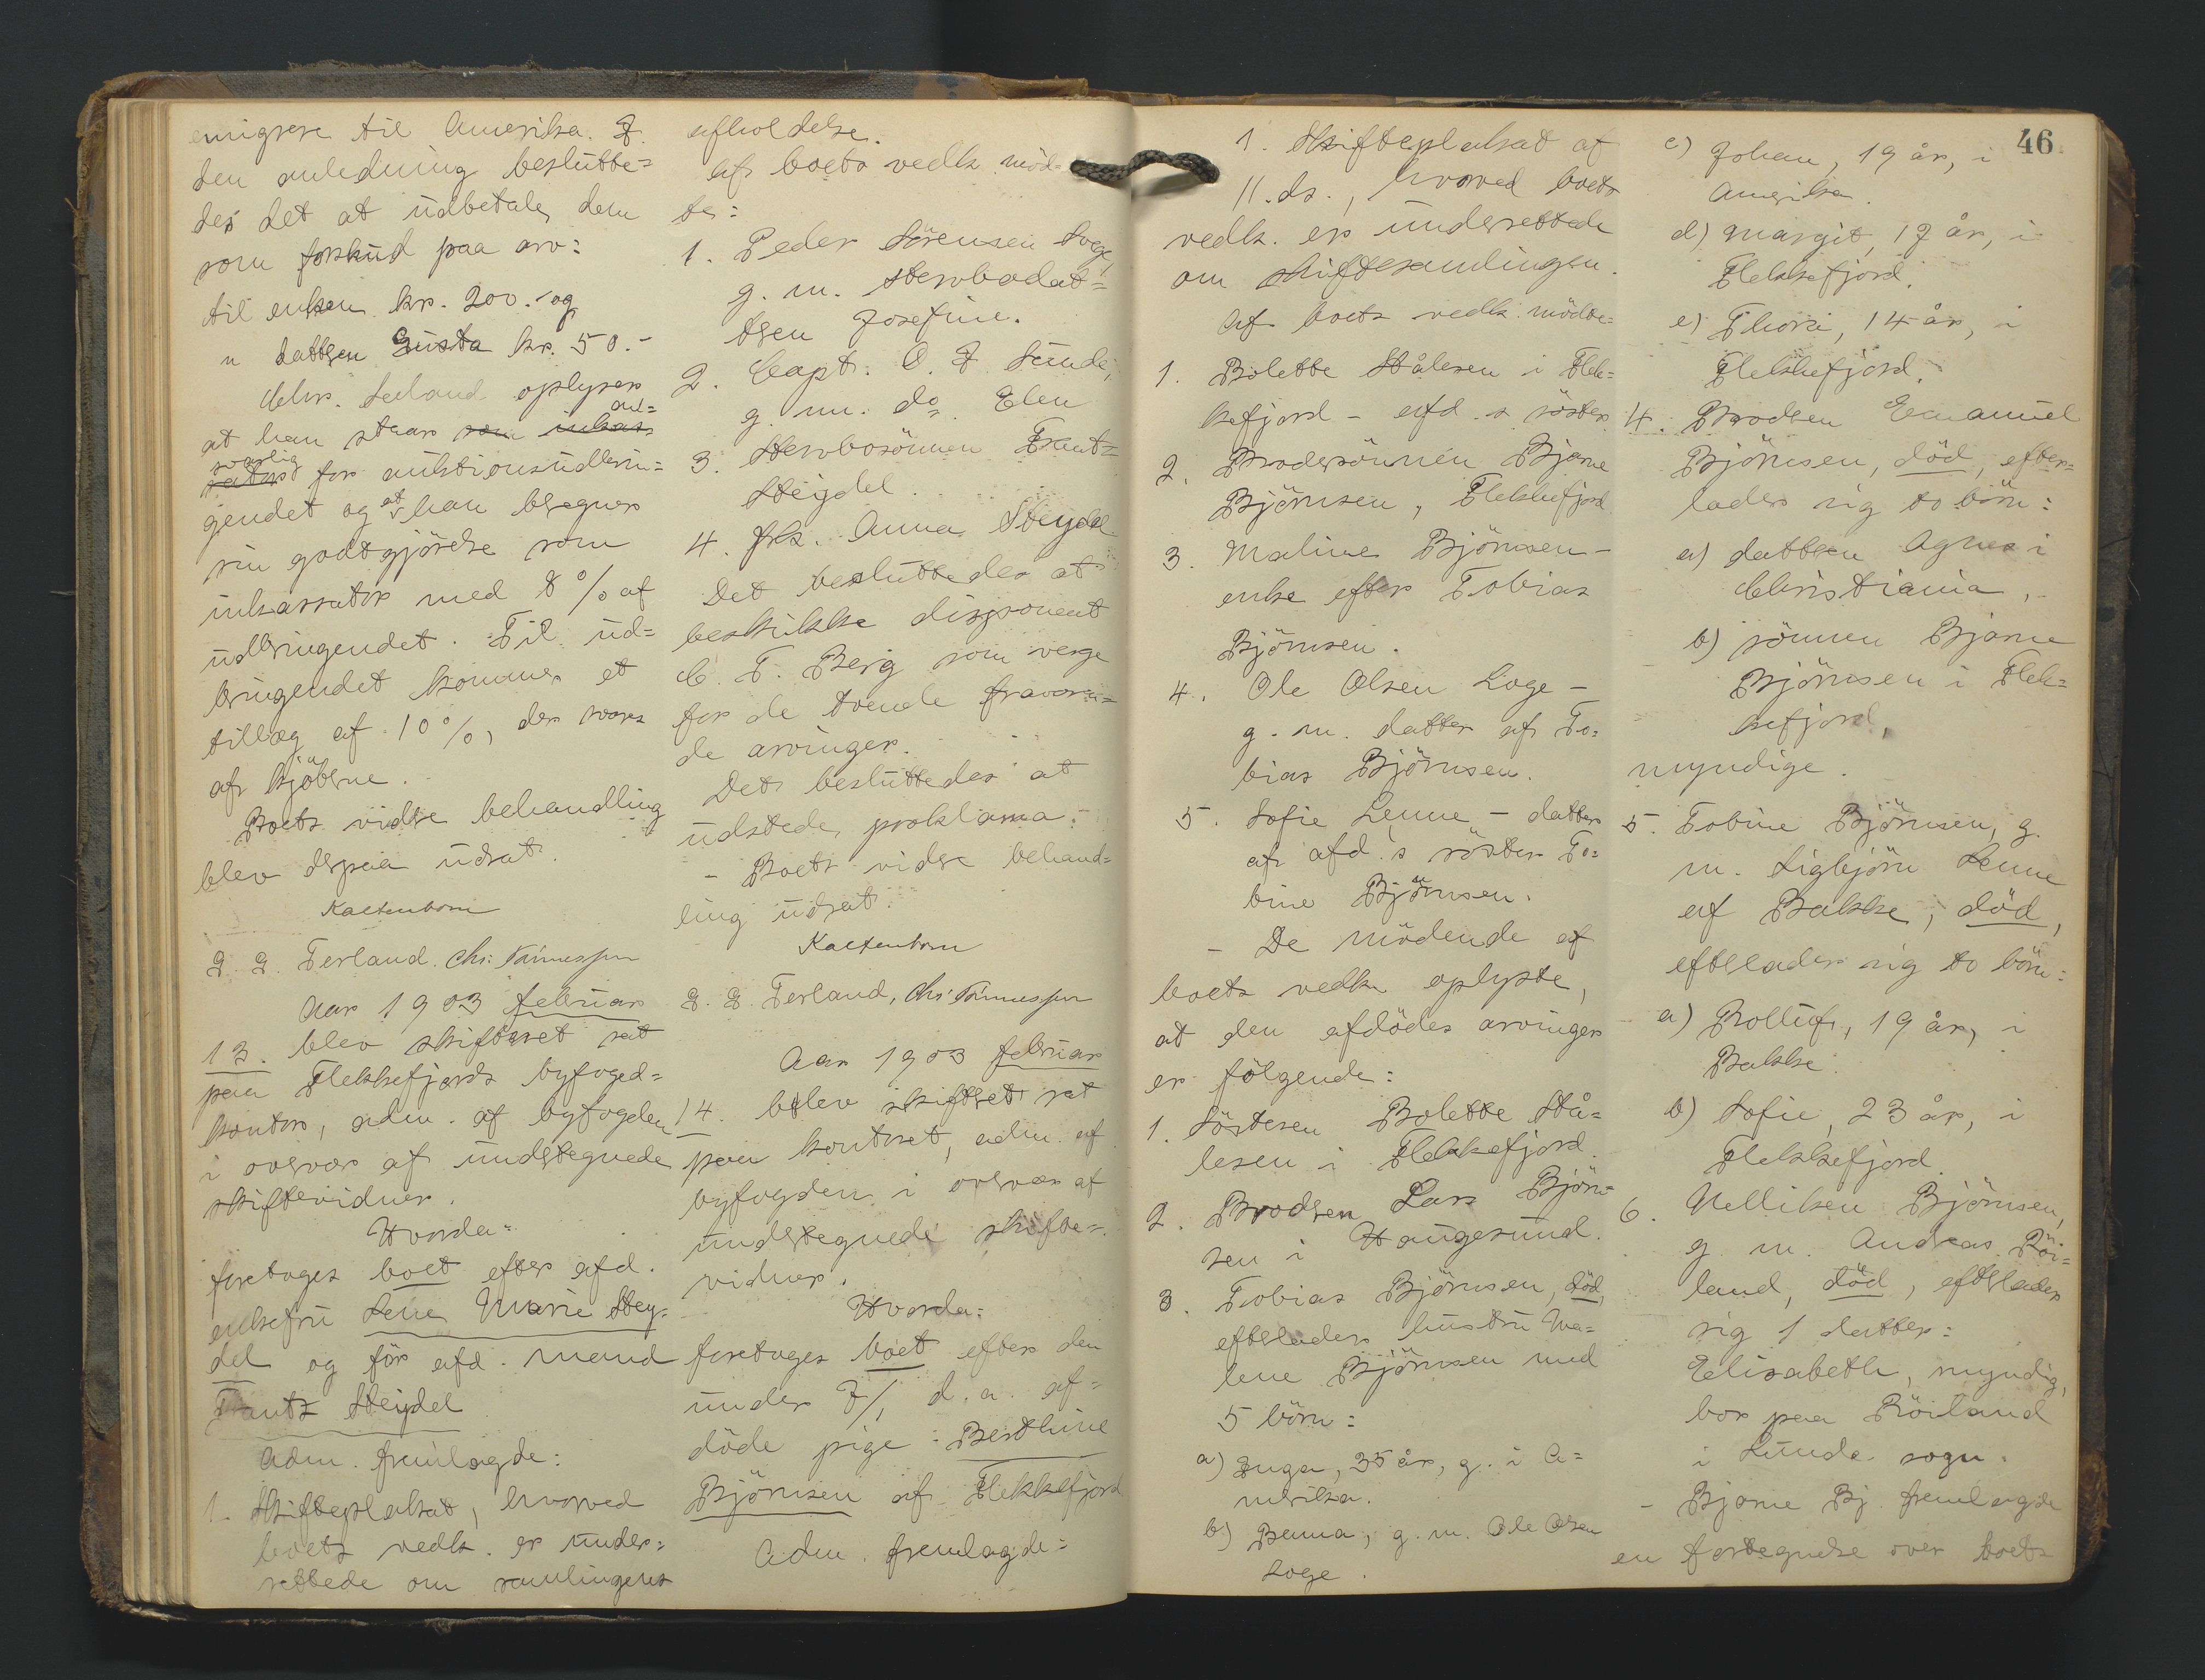 emigrere til Amerika. I
den anledning beslutte=
des det at udbetale dem
som forskud paa arv:
til enken kr. 200.- og
" datteren Gusta kr. 50.-
Chr. Seland oplyser
at han staar som inkas- an=
svarlig sator for auktionsudbrin=
gendet og at han beregner
sin godtgjörelse som
inkassator med 8% af
udbringendet. Til ud=
bringendet kommer et
tillæg af 10%, der svares
af kjöberne.
Boets videre behandling
blev derpaa udsat.
Kaltenborn
G. G. Tesland. Chr. Tönnessen
Aar 1903 februar
13. blev skifteret sat
paa Flekkefjords byfoged=
kontor, adm. af byfogden
i overvær af undertegnede
skiftevidner.
Hvorda:
foretoges boet efter afd.
enkefru Lene Marie Stey=
del og för afd. mand
Frantz Steydel
Adm. fremlagde:
1. Skifteplakat, hvorved
boets vedk. er under=
rettede om samlingens
afholdelse.
Af boets vedk. möd=
te:
1. Peder Sörensen Loge,
g. m. stervbodat=
teren Josefine.
2. Capt. O. F. Sunde,
g. m. do. Elen
3. Stervbosönnen Frantz
Steydel.
4. frk. Anna Steydel
Det besluttedes at
beskikke disponent
C. F. Berg som verge
for de tvende fraværen=
de arvinger.
Det besluttedes at
udstede proklama.
- Boets videre behand=
ling udsat.
Kaltenborn
G. G. Tesland, Chr. Tönnessen
Aar 1903 februar
14. blev skifteret sat
paa kontoret, adm. af
byfogden i overvær af
undertegnede skifte=
vidner.
Hvorda:
foretoges boet efter den
under 7/1 d. a. af=
döde pige: Berthine
Björnsen af Flekkefjord
Adm. fremlagde:
46
1. Skifteplakat af
11. ds., hvorved boets
vedk. er underrettede
om skiftesamlingen.
Af boets vedk. mödte:
1. Bolette Stålesen i Flek=
kefjord - afd.s söster
2. Brodersönnen Bjarne
Björnsen, Flekkefjord
3. Maline Björnsen -
enke efter Tobias
Björnsen.
4. Ole Olsen Loge -
g. m. datter af To=
bias Björnsen.
5. Sofie Lenne - datter
af afd.'s söster To=
bine Björnsen.
- De mödende af
boets vedk. oplyste,
at den afdödes arvinger
er fölgende:
1. Sösteren Bolette Stå=
lesen i Flekkefjord.
2. Broderen Lars Björn=
sen i Haugesund.
3. Tobias Björnsen, död,
efterlader hustru Ma=
lene Björnsen med
5 börn:
a) Inga, 35 år, g. i A=
merika.
b) Benna, g. m. Ole Olsen
Loge.
c) Johan, 19 år, i
Amerika.
d) Margit, 17 år, i
Flekkefjord.
e) Thora, 14 år, i
Flekkefjord.
4. Broderen Emanuel
Björnsen, död, efter=
lader sig to börn:
a) datteren Agnes i
Christiania,
b) sönnen Bjarne
Björnsen i Flek=
kefjord,
myndige.
5. Tobine Björnsen, g.
m. Sigbjörn Lenne
af Bakke, död,
efterlader sig to börn:
a) Rolluf, 19 år, i
Bakke.
b) Sofie, 23 år, i
Flekkefjord.
6. Nelliken Björnsen,
g. m. Andreas Röi=
land, död, efterlader
sig 1 datter:
Elisabeth, myndig,
bor paa Röiland
i Lunde sogn.
- Bjarne Bj. fremlagde
en fortegnelse over boets